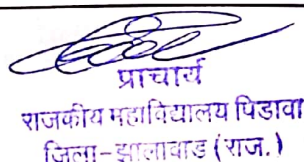 प्राचार्य
राजकीय महाविद्यालय पिडावा
जिला-झालावाड (राज.)